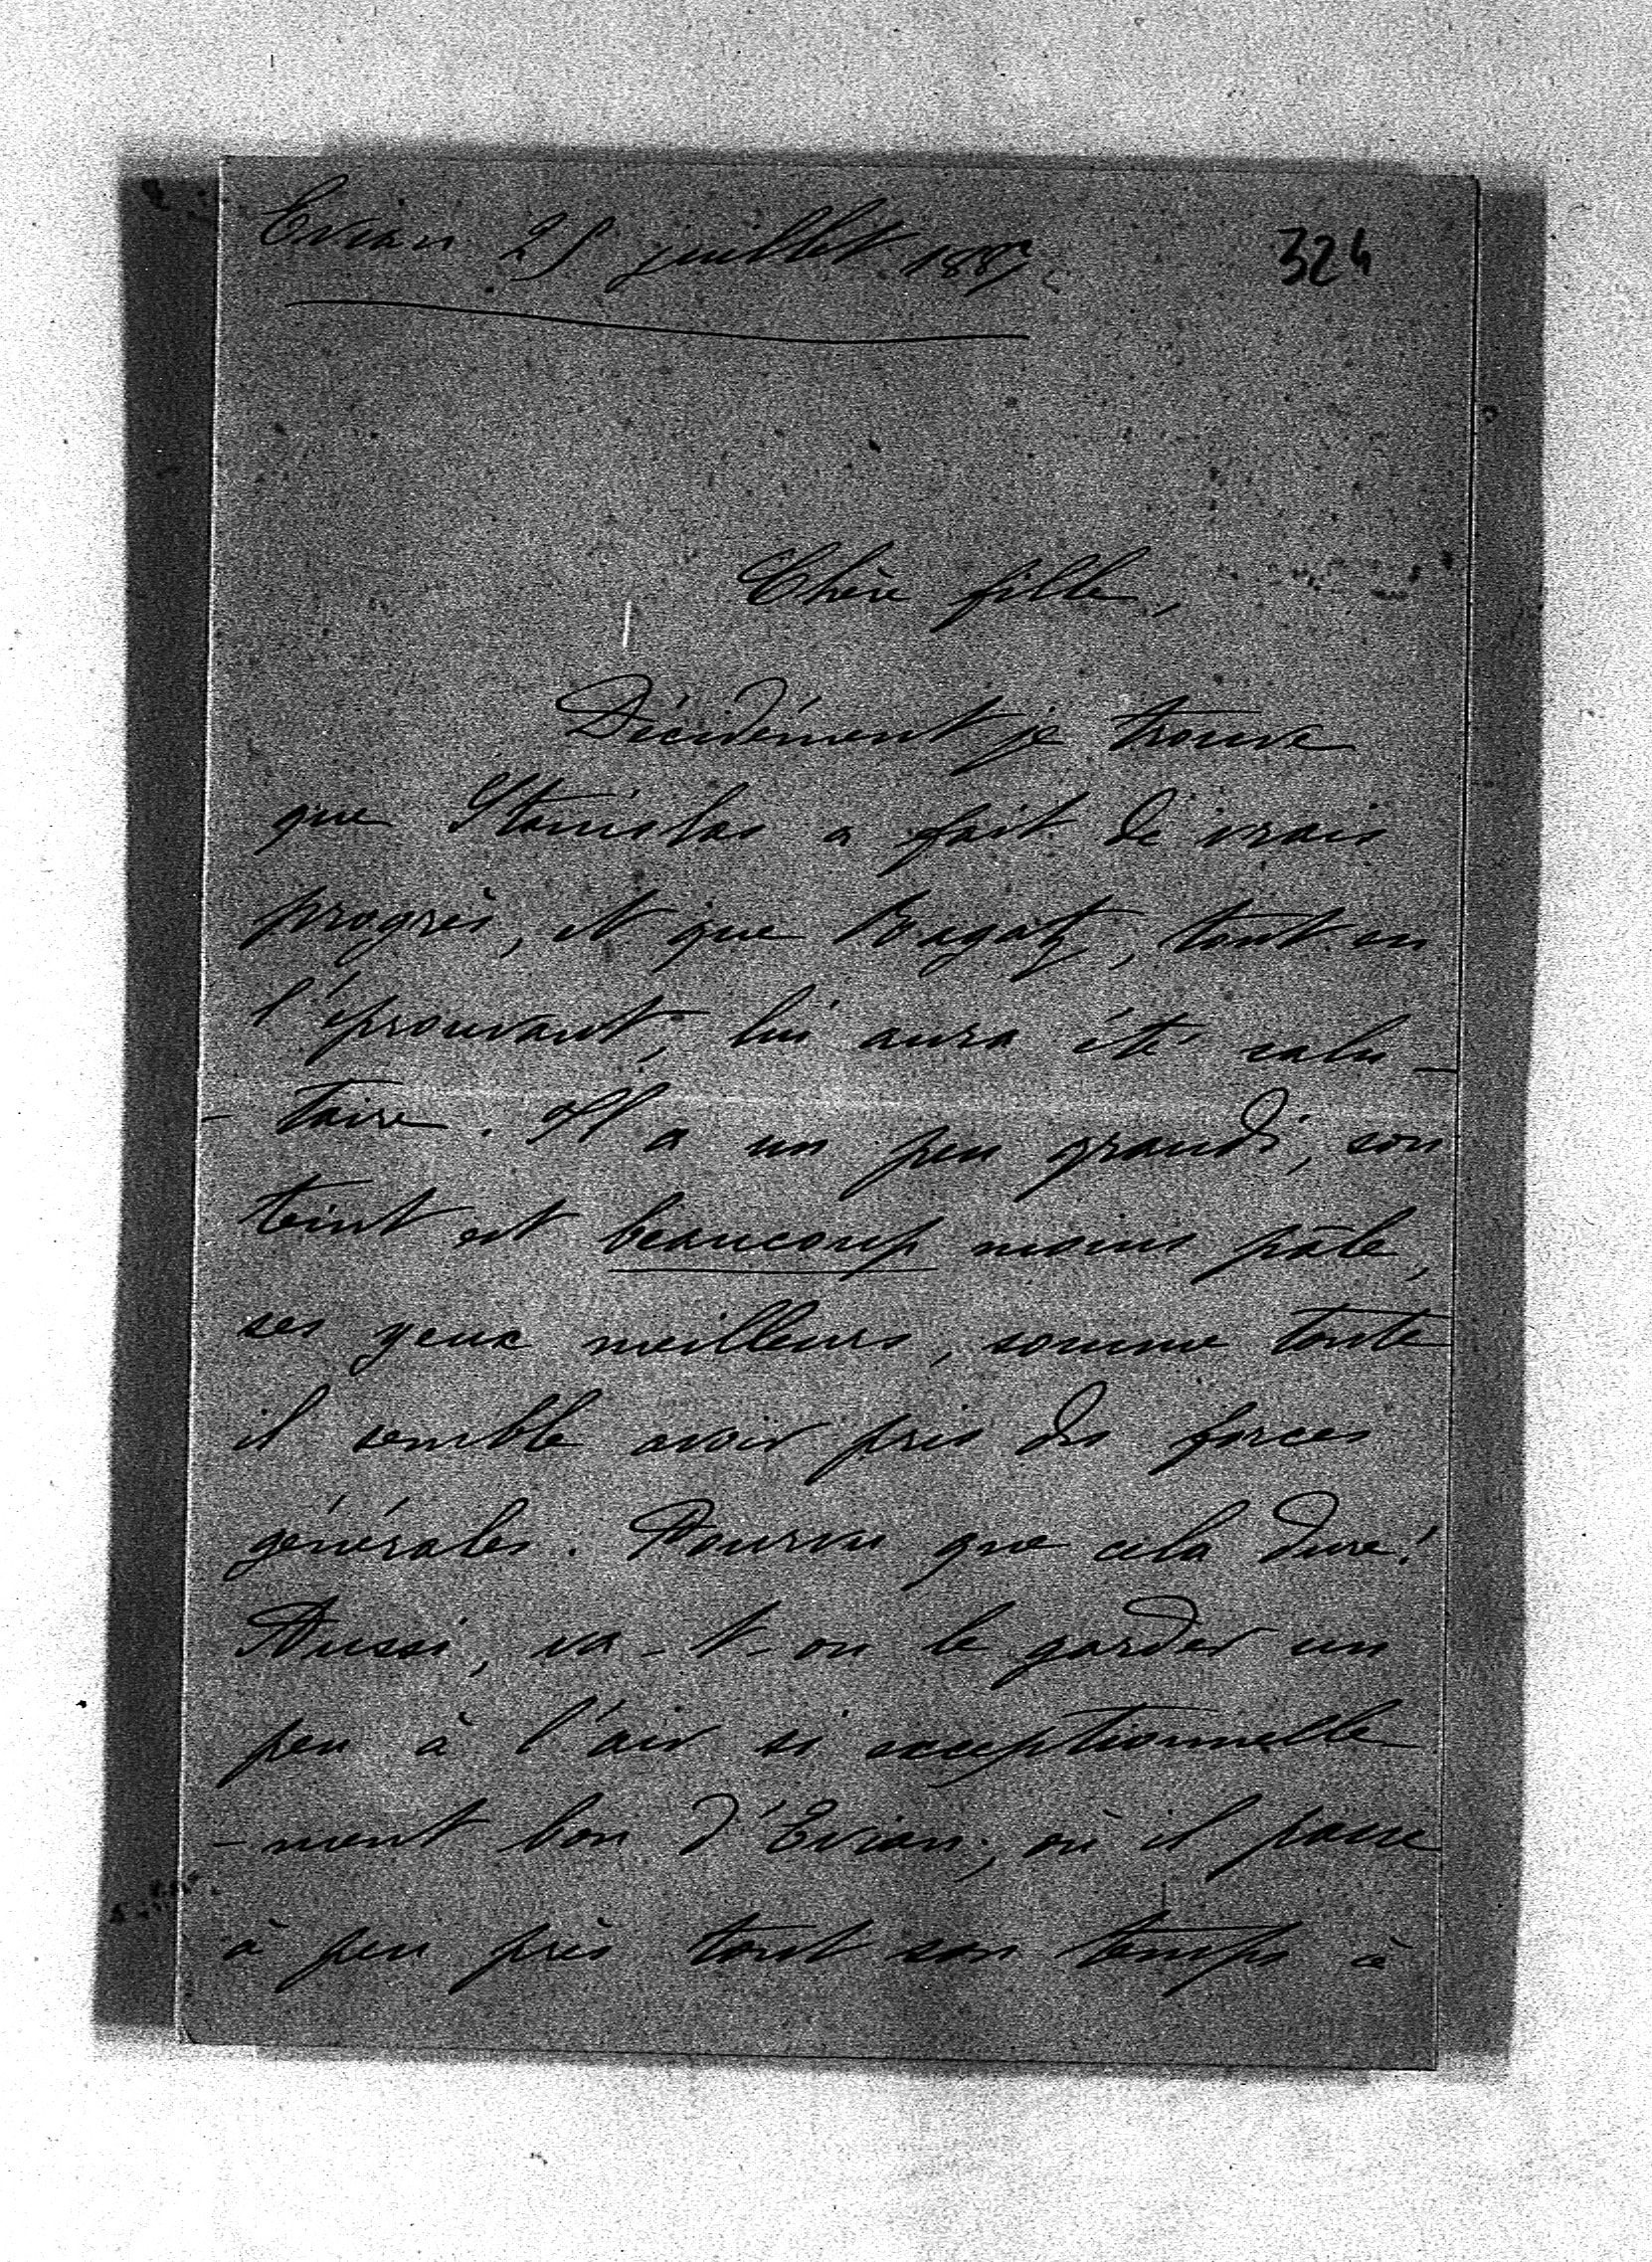 Evian 25 juillet 1887.
324
Chère fille,
Décidément je trouve
que Stanislas a fait de vrais
progrès, et que Ragatz, tout en
l'éprouvant, lui aura été salu-
-taire. Il a un peu grandi, son
teint est beaucoup moins pâle,
ses yeux meilleurs, somme toute
il semble avoir pris des forces
générales. Pourvu que cela dure!
Aussi, va-t-on le garder un
peu à l'air si exceptionnelle-
-ment bon d'Evian, où il passe
à peu près tout son temps à